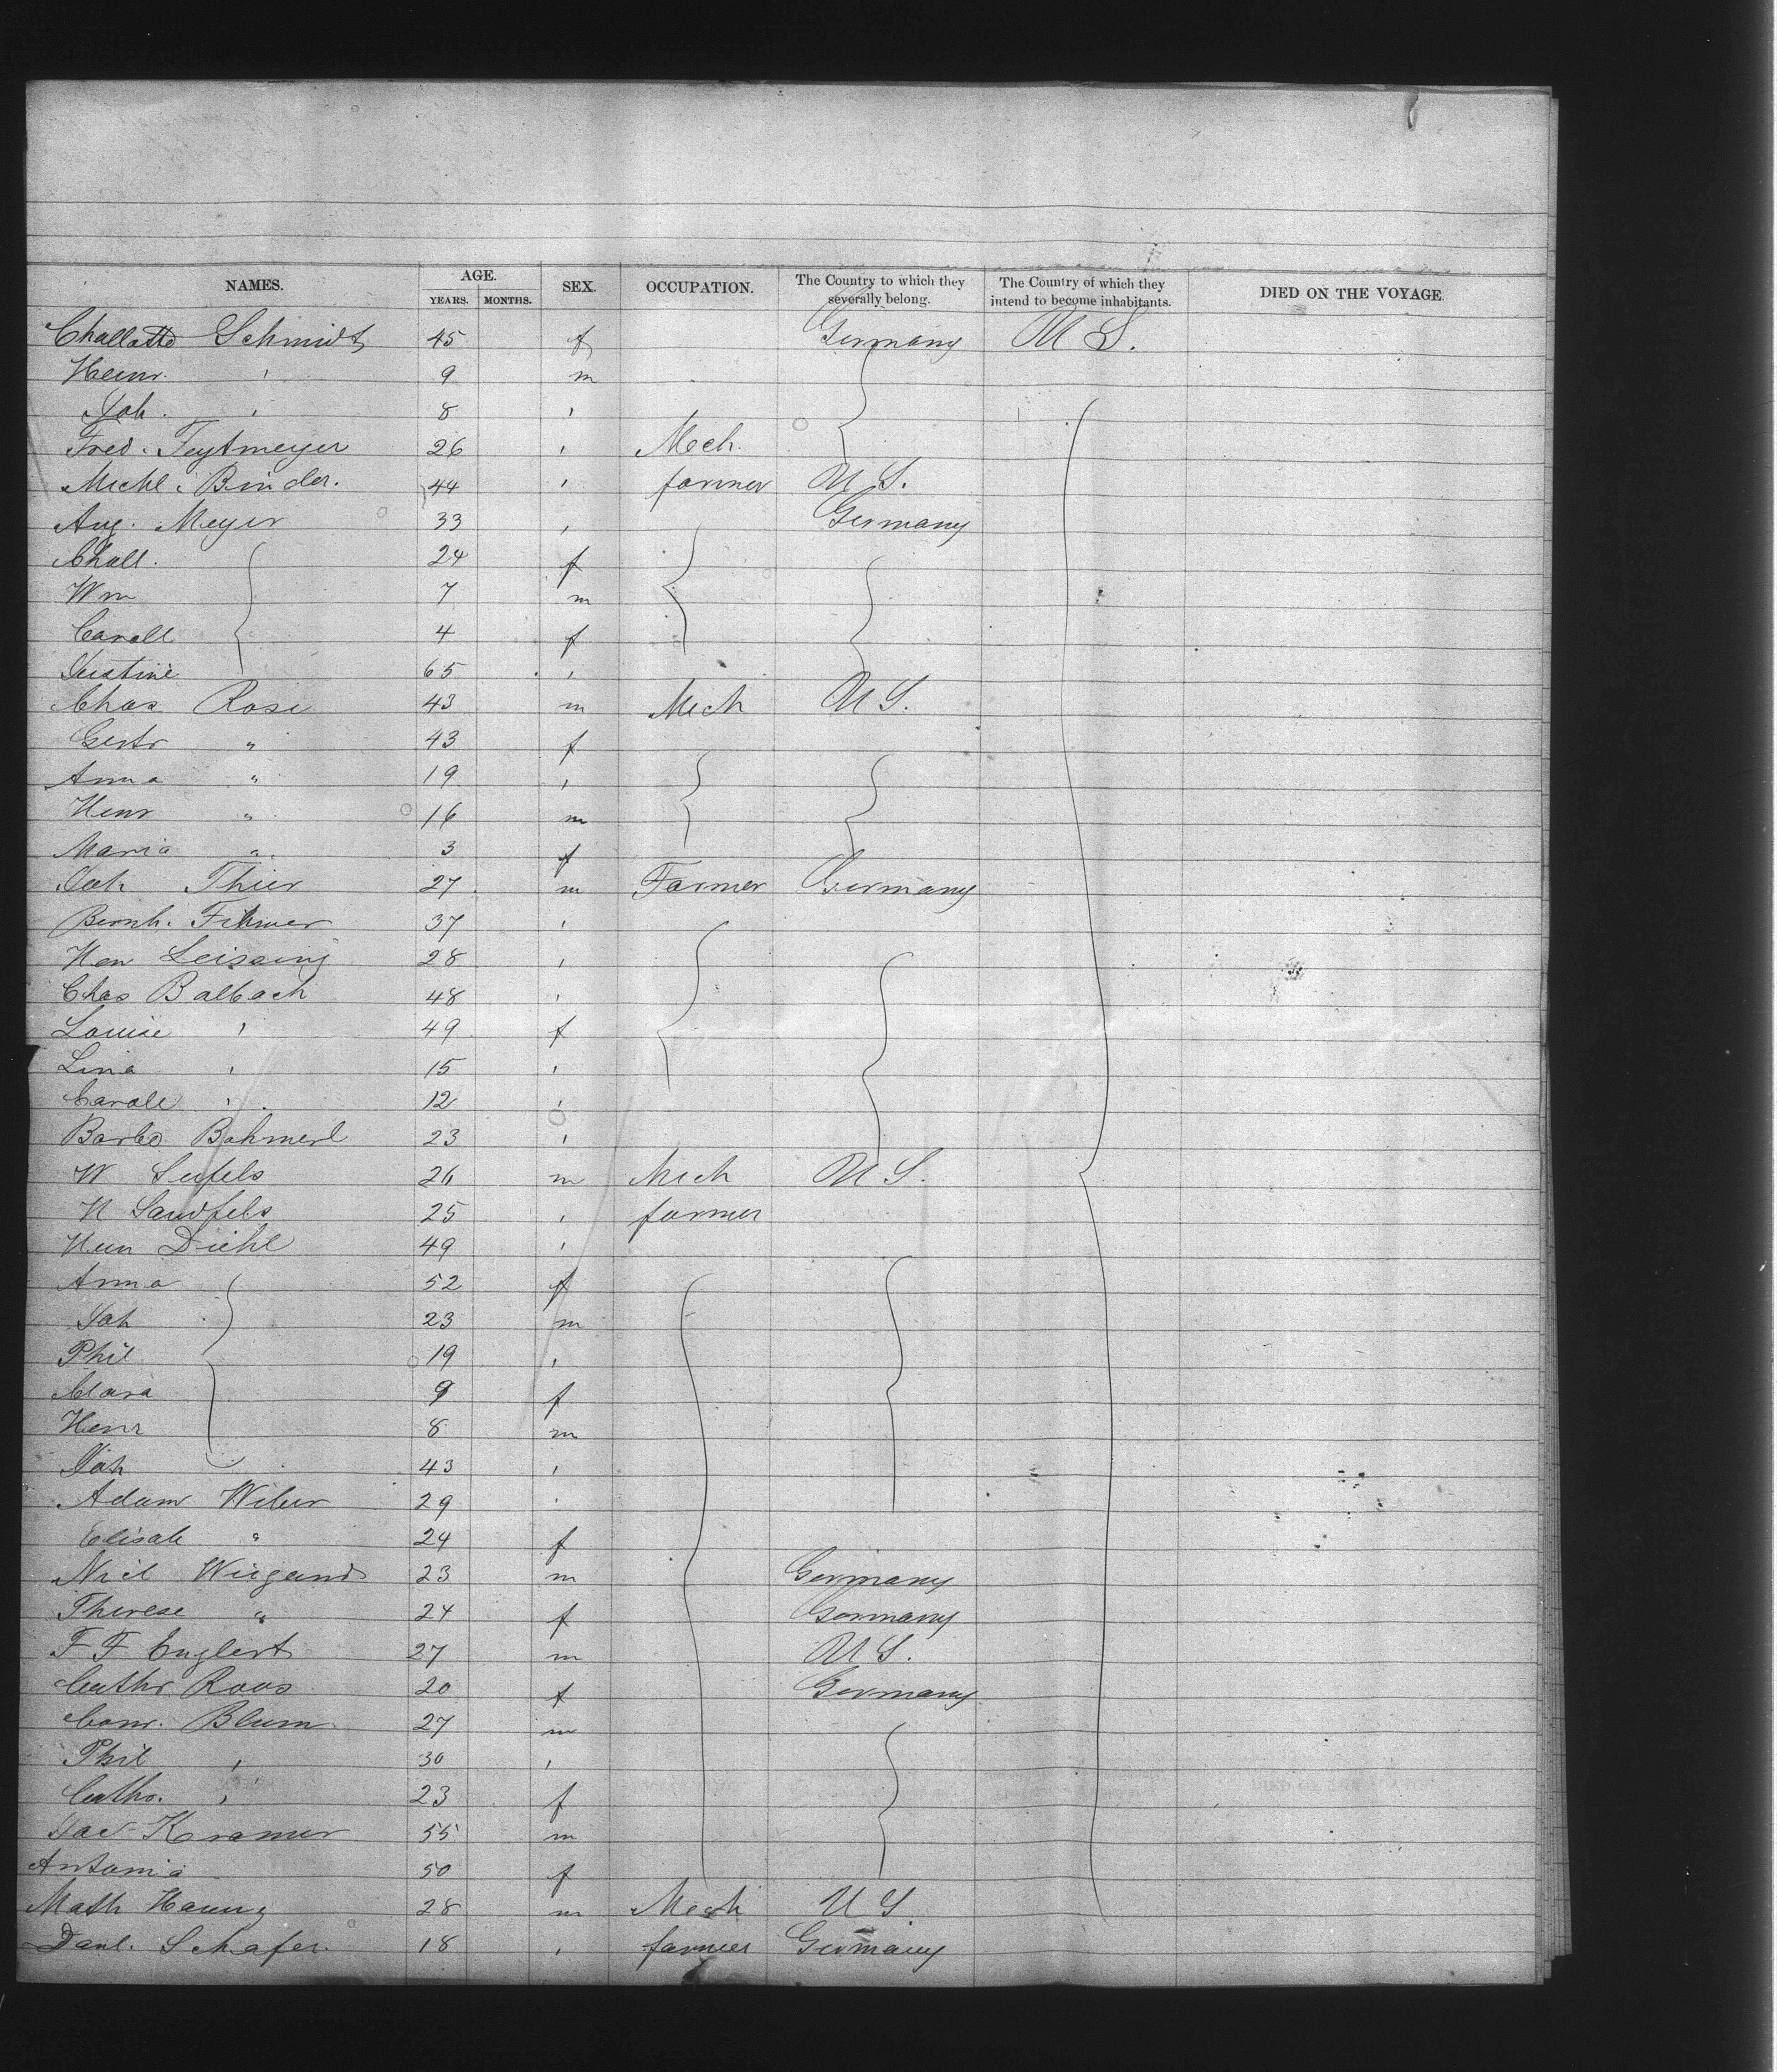 NAMES. AGE. YEARS. MONTHS. SEX. OCCUPATION. The Country to which they severally belong. The Country of which they intend to become inhabitants. DIED ON THE VOYAGE.
Schmidt 45 f Germany U S.
Heinr. " 9 m
Joh. " 8 "
Fred. Feytmeyer 26 " Mech.
Michl. Binder. 44 " farmer U S.
Aug. Meyer 33 " Germany
Chall. 24 f
Wm 7 m
Caroll 4 f
Justine 65 "
Chas Rose 43 m Mech U S.
Gertr " 43 f
Anna " 19 "
Henr " 16 m
Maria " 3 f
Joh Thier 27 m Farmer Germany
Bernh. 37 "
28 "
Chas Balbach 48 "
Louise " 49 f
Lina " 15 "
Caroll " 12 "
23 "
W 26 m Mech U S.
H Sandfels 25 " farmer
Diehl 49 "
Anna 52 f
Joh 23 m
Phil 19 "
Clara 9 f
Henr 8 m
Joh 43 "
Adam Weber 29 "
Elisab " 24 f
Wiegand 23 m Germany
Therese " 24 f Germany
F F Englert 27 m U S.
Cathr Roos 20 f Germany
Conr. Blum 27 m
Phil " 30 "
Cathr. " 23 f
Jac Kramer 55 m
Antonia 50 f
Math 28 m Mech U S.
Danl. Schafer. 18 " farmer Germany